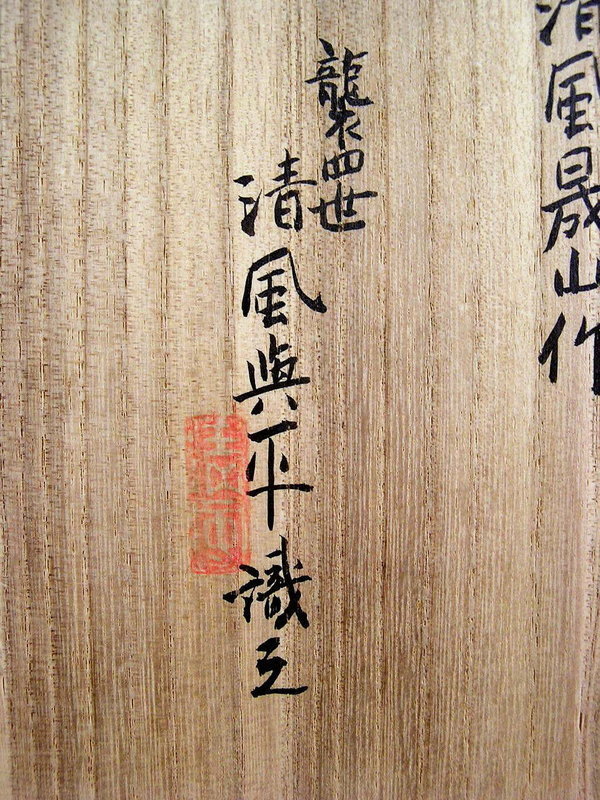 清風晟山作
襲四世
清風與平識之